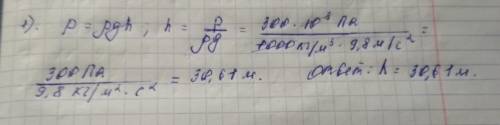 1). p = ρgh ; h = p/ρg = 300 · 10³ Па / 1000 кг/м³ · 9,8 м/с² =
300 Па / 9,8 кг/м² · с² = 30,61 м. Ответ: h = 30,61 м.